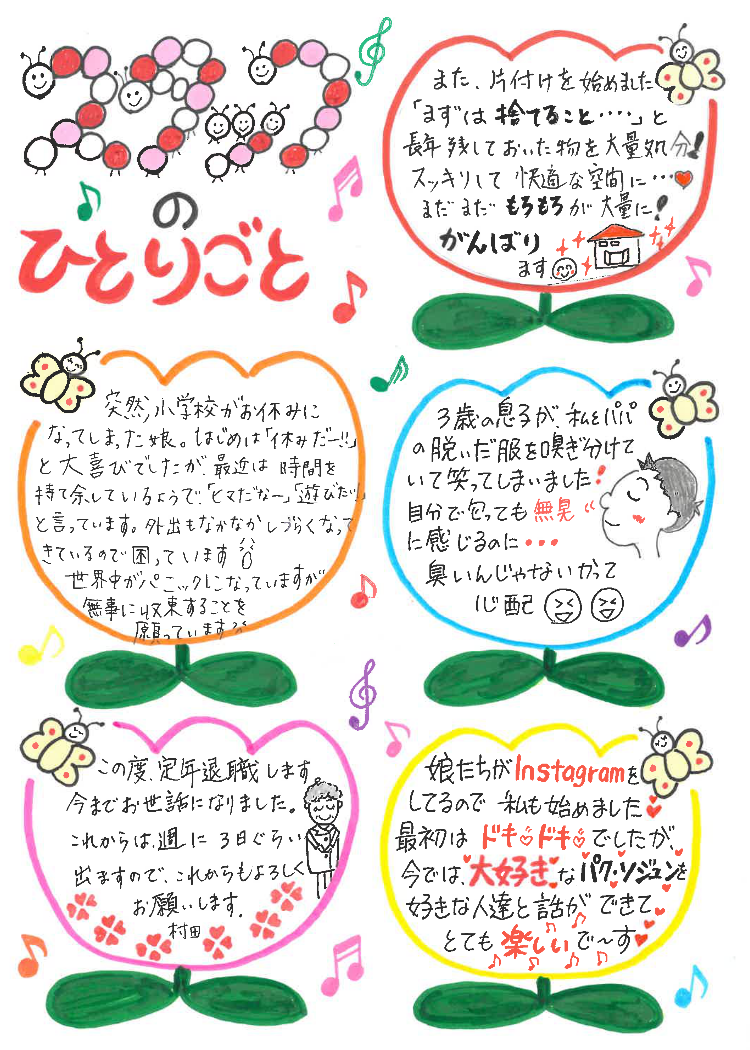 スタッフ
の
ひとりごと
また、片付けを始めました
「まずは捨てること‥‥」と
長年残しておいた物を大量処分!
スッキリして快適な空間に…
まだまだもろもろが大量に!
がんばり
ます
突然、小学校がお休みに
なってしまった娘。はじめは「休みだー!!」
と大喜びでしたが、最近は時間を
持て余しているようで、「ヒマだなー」「遊びたい!」
と言っています。外出もなかなかしづらくなって
きているので困っています
世界中がパニックになっていますが
無事に収束することを
願っています
3歳の息子が、私とパパ
の脱いだ服を嗅ぎ分けて
いて笑ってしまいました!
自分で匂っても無臭
に感じるのに・・・
臭いんじゃないかって
心配
この度、定年退職します。
今までお世話になりました。
これからは、週に3日ぐらい
出ますので、これからもよろしく
お願いします。
村田
娘たちがInstagramを
してるので私も始めました
最初はドキドキでしたが、
今では、大好きなパク・ソジュンを
好きな人達と話ができて
とても楽しいで〜す